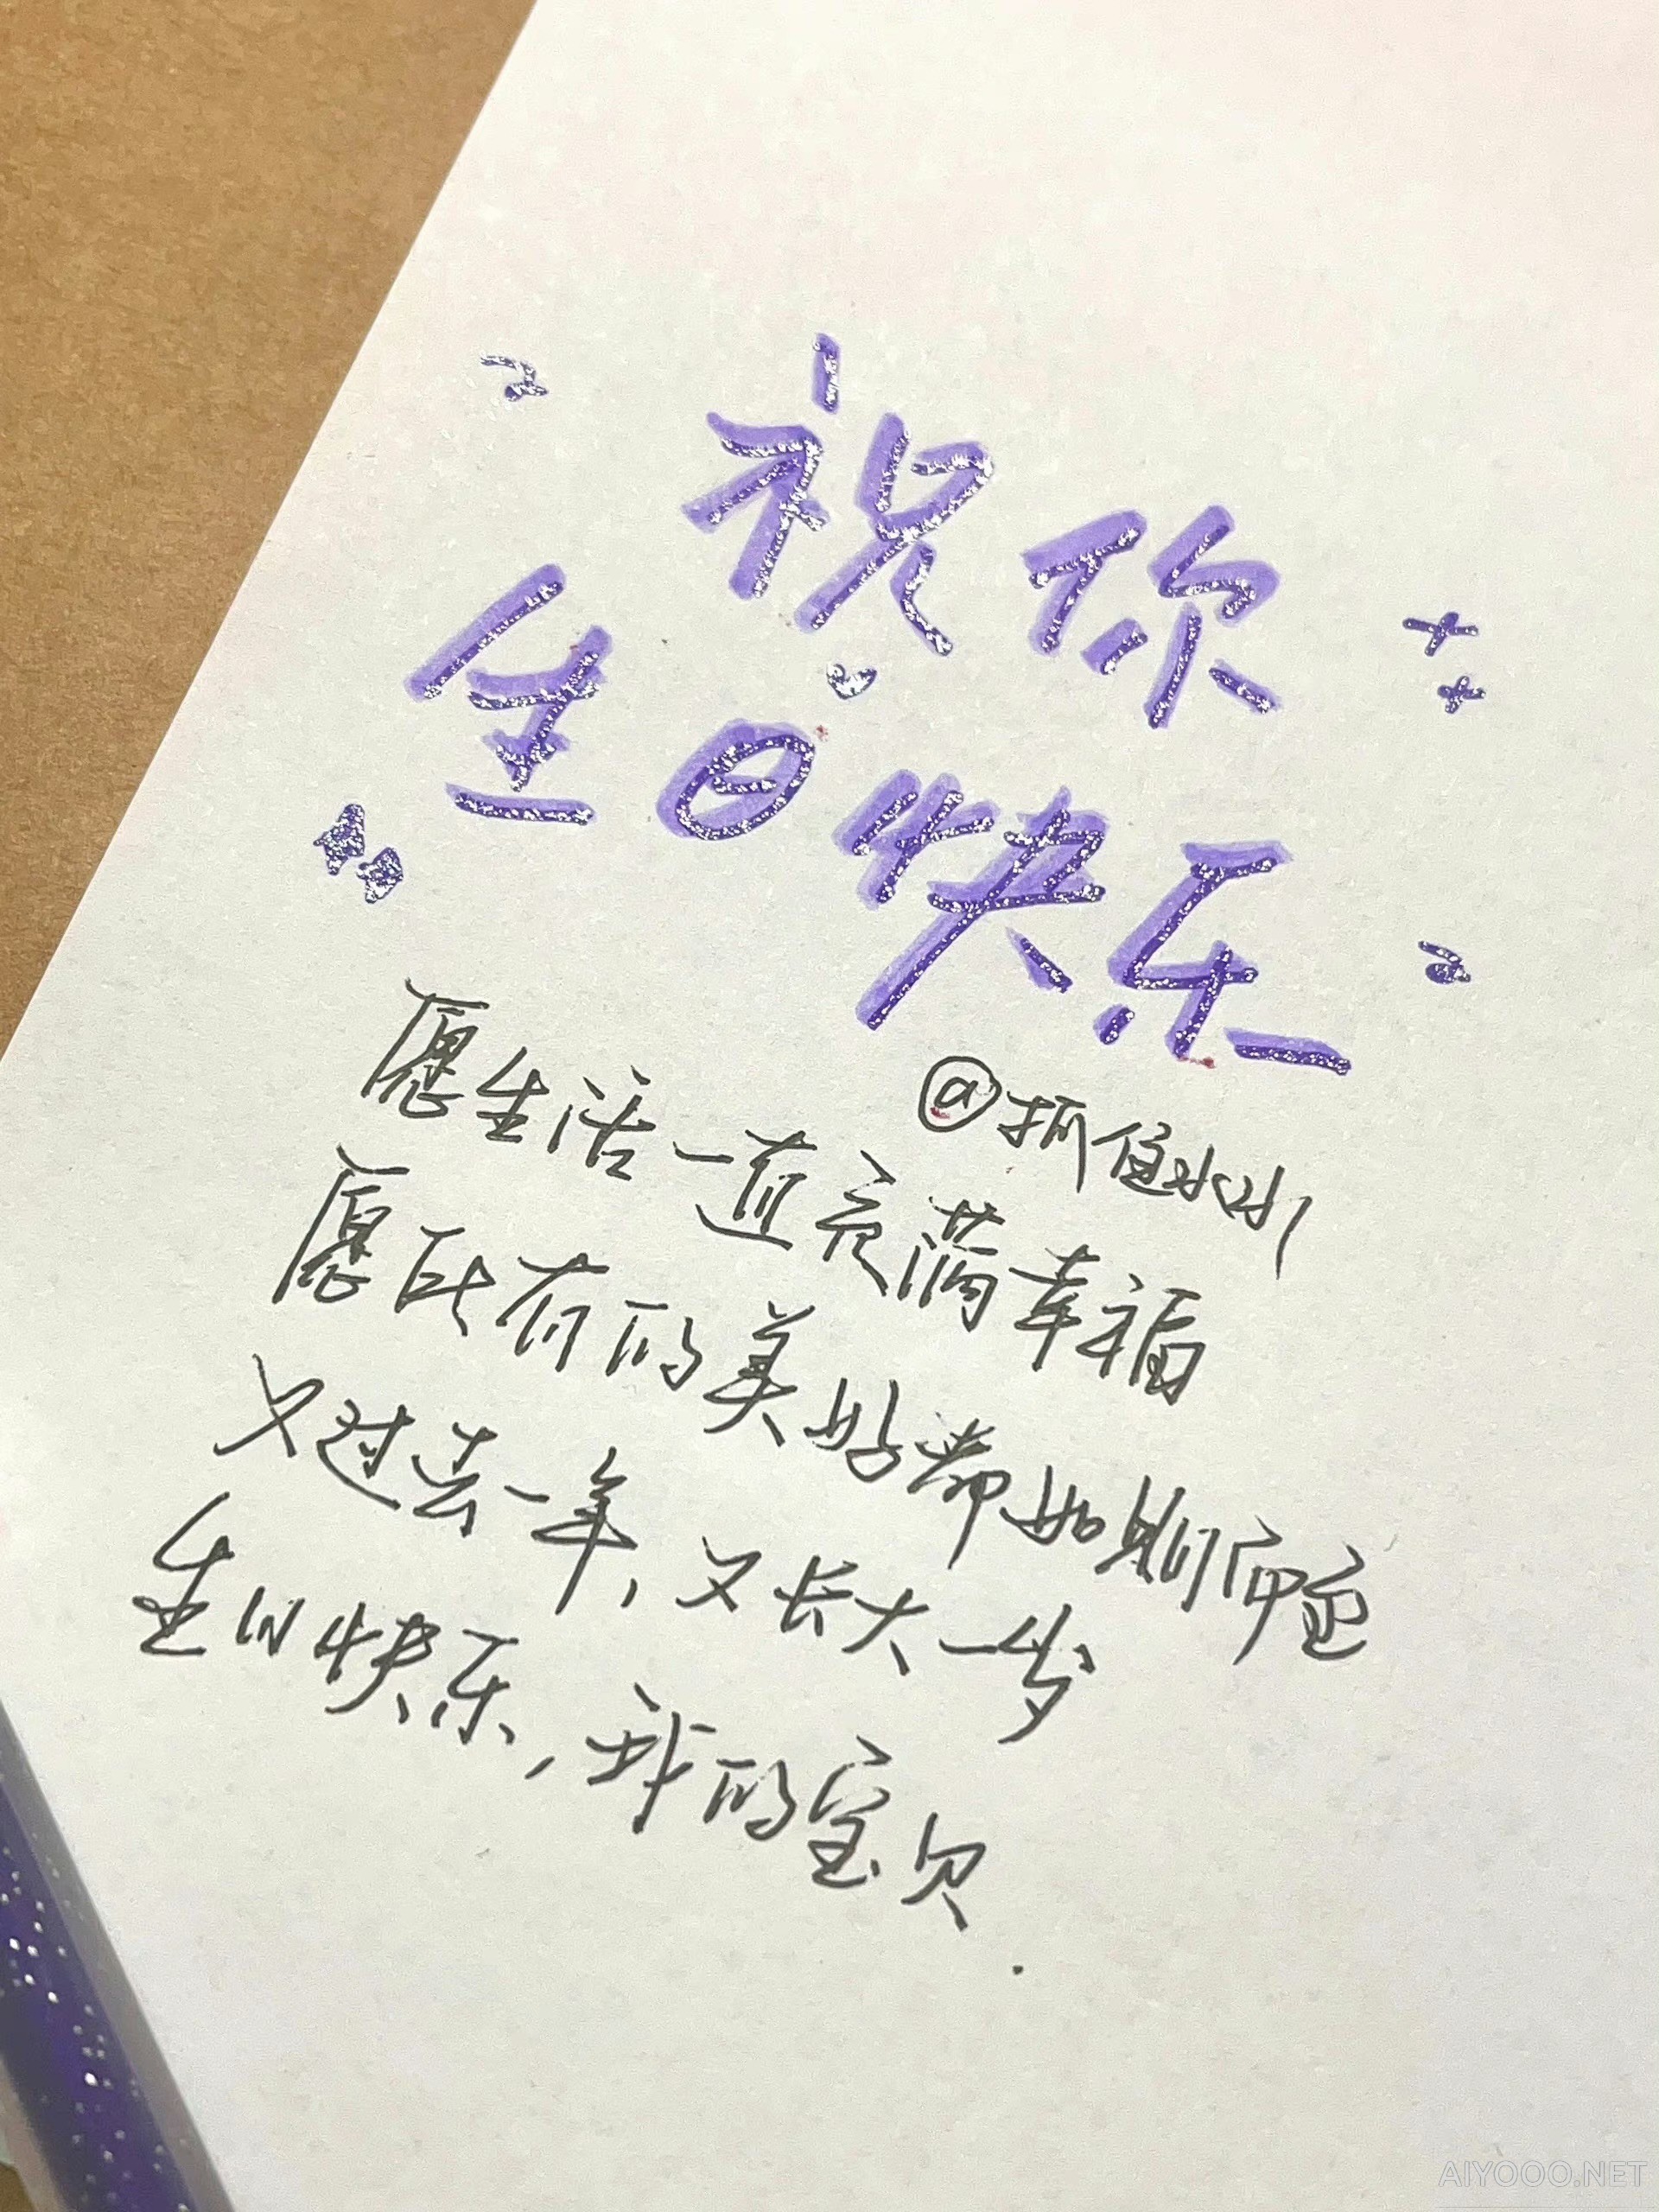 祝你
生日快乐
@抓住水水
愿生活一直充满幸福
愿所有的美好都如期而至
又过去一年,又长大一岁
生日快乐,我的宝贝
AIYOOO.NET